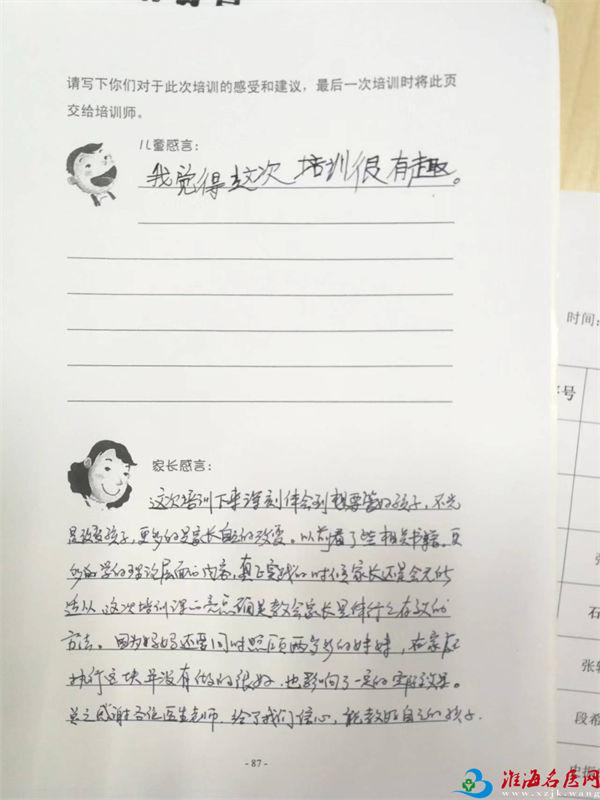 请写下你们对于此次培训的感受和建议，最后一次培训时将此页
交给培训师。
儿童感言：
我觉得这次培训很有趣。
家长感言：
这次培训下来深刻体会到想要管好孩子，不光
是改变孩子，更多的是家长自己的改变。以前看了些相关书籍，更
多的学的理论层面的内容，真正实践的时候家长还是会无所
适从，这次培训课的亮点确是教会家长具体行之有效的
方法。因为妈妈还要同时照顾两岁多的妹妹，在家庭
执行这块并没有做的很好，也影响了一定的实际效果。
总之感谢各位医生老师，给了我们信心，能教好自己的孩子.
- 87 -
时间：
序号
石
张轩
段希
淮海名医网
www.xzjk.wang